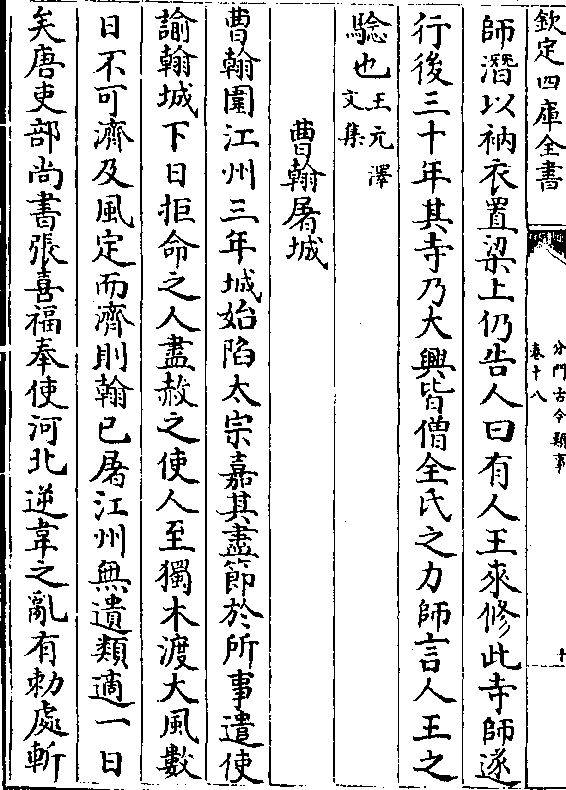 欽定四庫全書
分門古今類事
卷十八
十
師潛以衲衣置梁上仍告人曰有人王來修此寺師遂
行後三十年其寺乃大興皆僧全氏之力師言人王之
驗也王元澤
文集
曹翰屠城
曹翰圍江州三年城始陷太宗嘉其盡節於所事遣使
諭翰城下日拒命之人盡赦之使人至獨木渡大風數
日不可濟及風定而濟則翰已屠江州無遺類適一日
矣唐吏部尚書張喜福奉使河北逆韋之亂有勅處斬